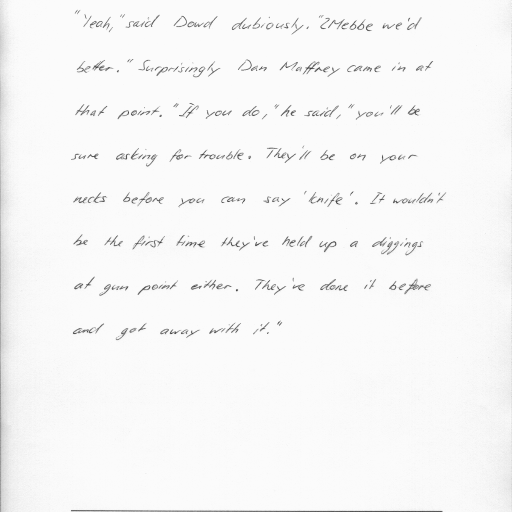 "Yeah," said Dowd dubiously. "Mebbe we'd
better." Surprisingly Dan Maffrey came in at
that point. "If you do," he said, "you'll be
sure asking for trouble. They'll be on your
necks before you can say 'knife'. It wouldn't
be the first time they've held up a diggings
at gun point either. They've done it before
and got away with it."